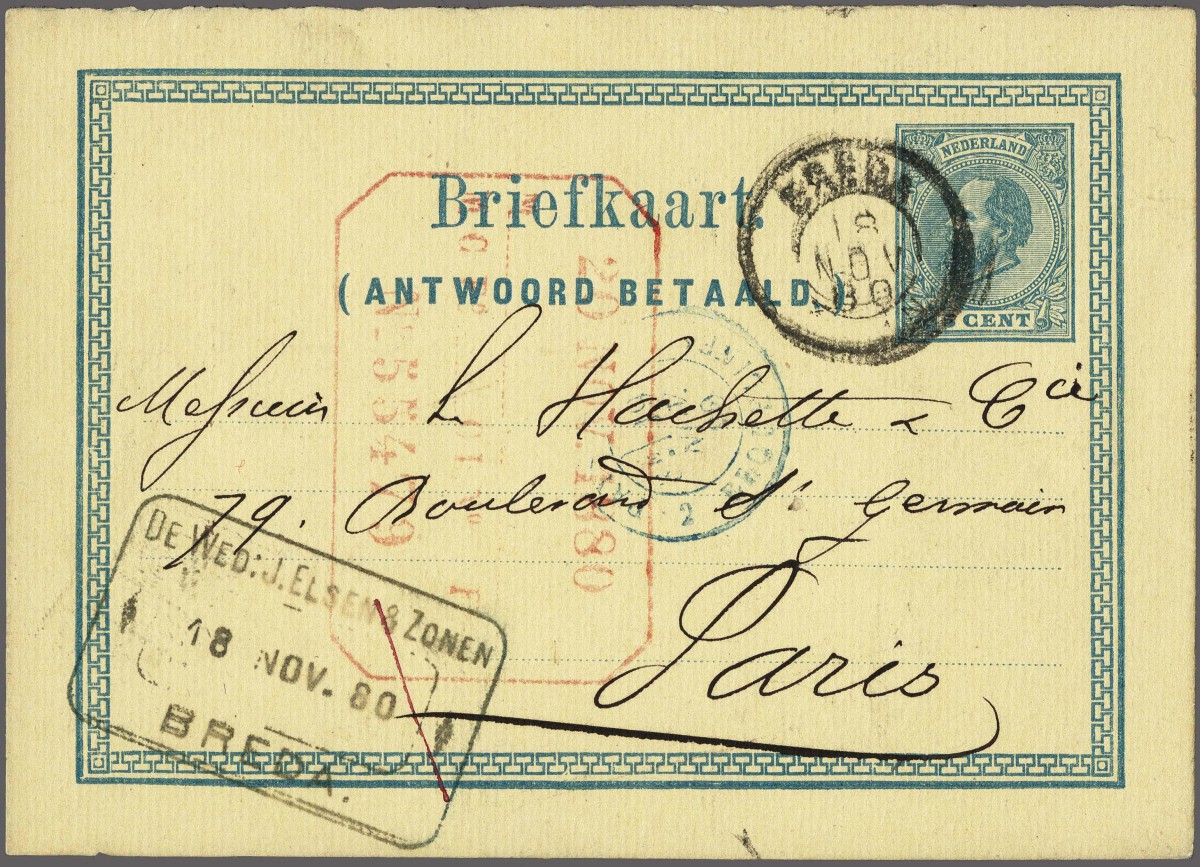 NEDERLAND
Briefkaart.
(ANTWOORD BETAALD.)
5 CENT
BREDA
18
NOV
80
Messieurs L. Hachette & Cie
79. Boulevard St Germain
Paris
DE WED: J. ELSEN & ZONEN
18 NOV. 80
BREDA.
20 NOV. 1880
55479
2